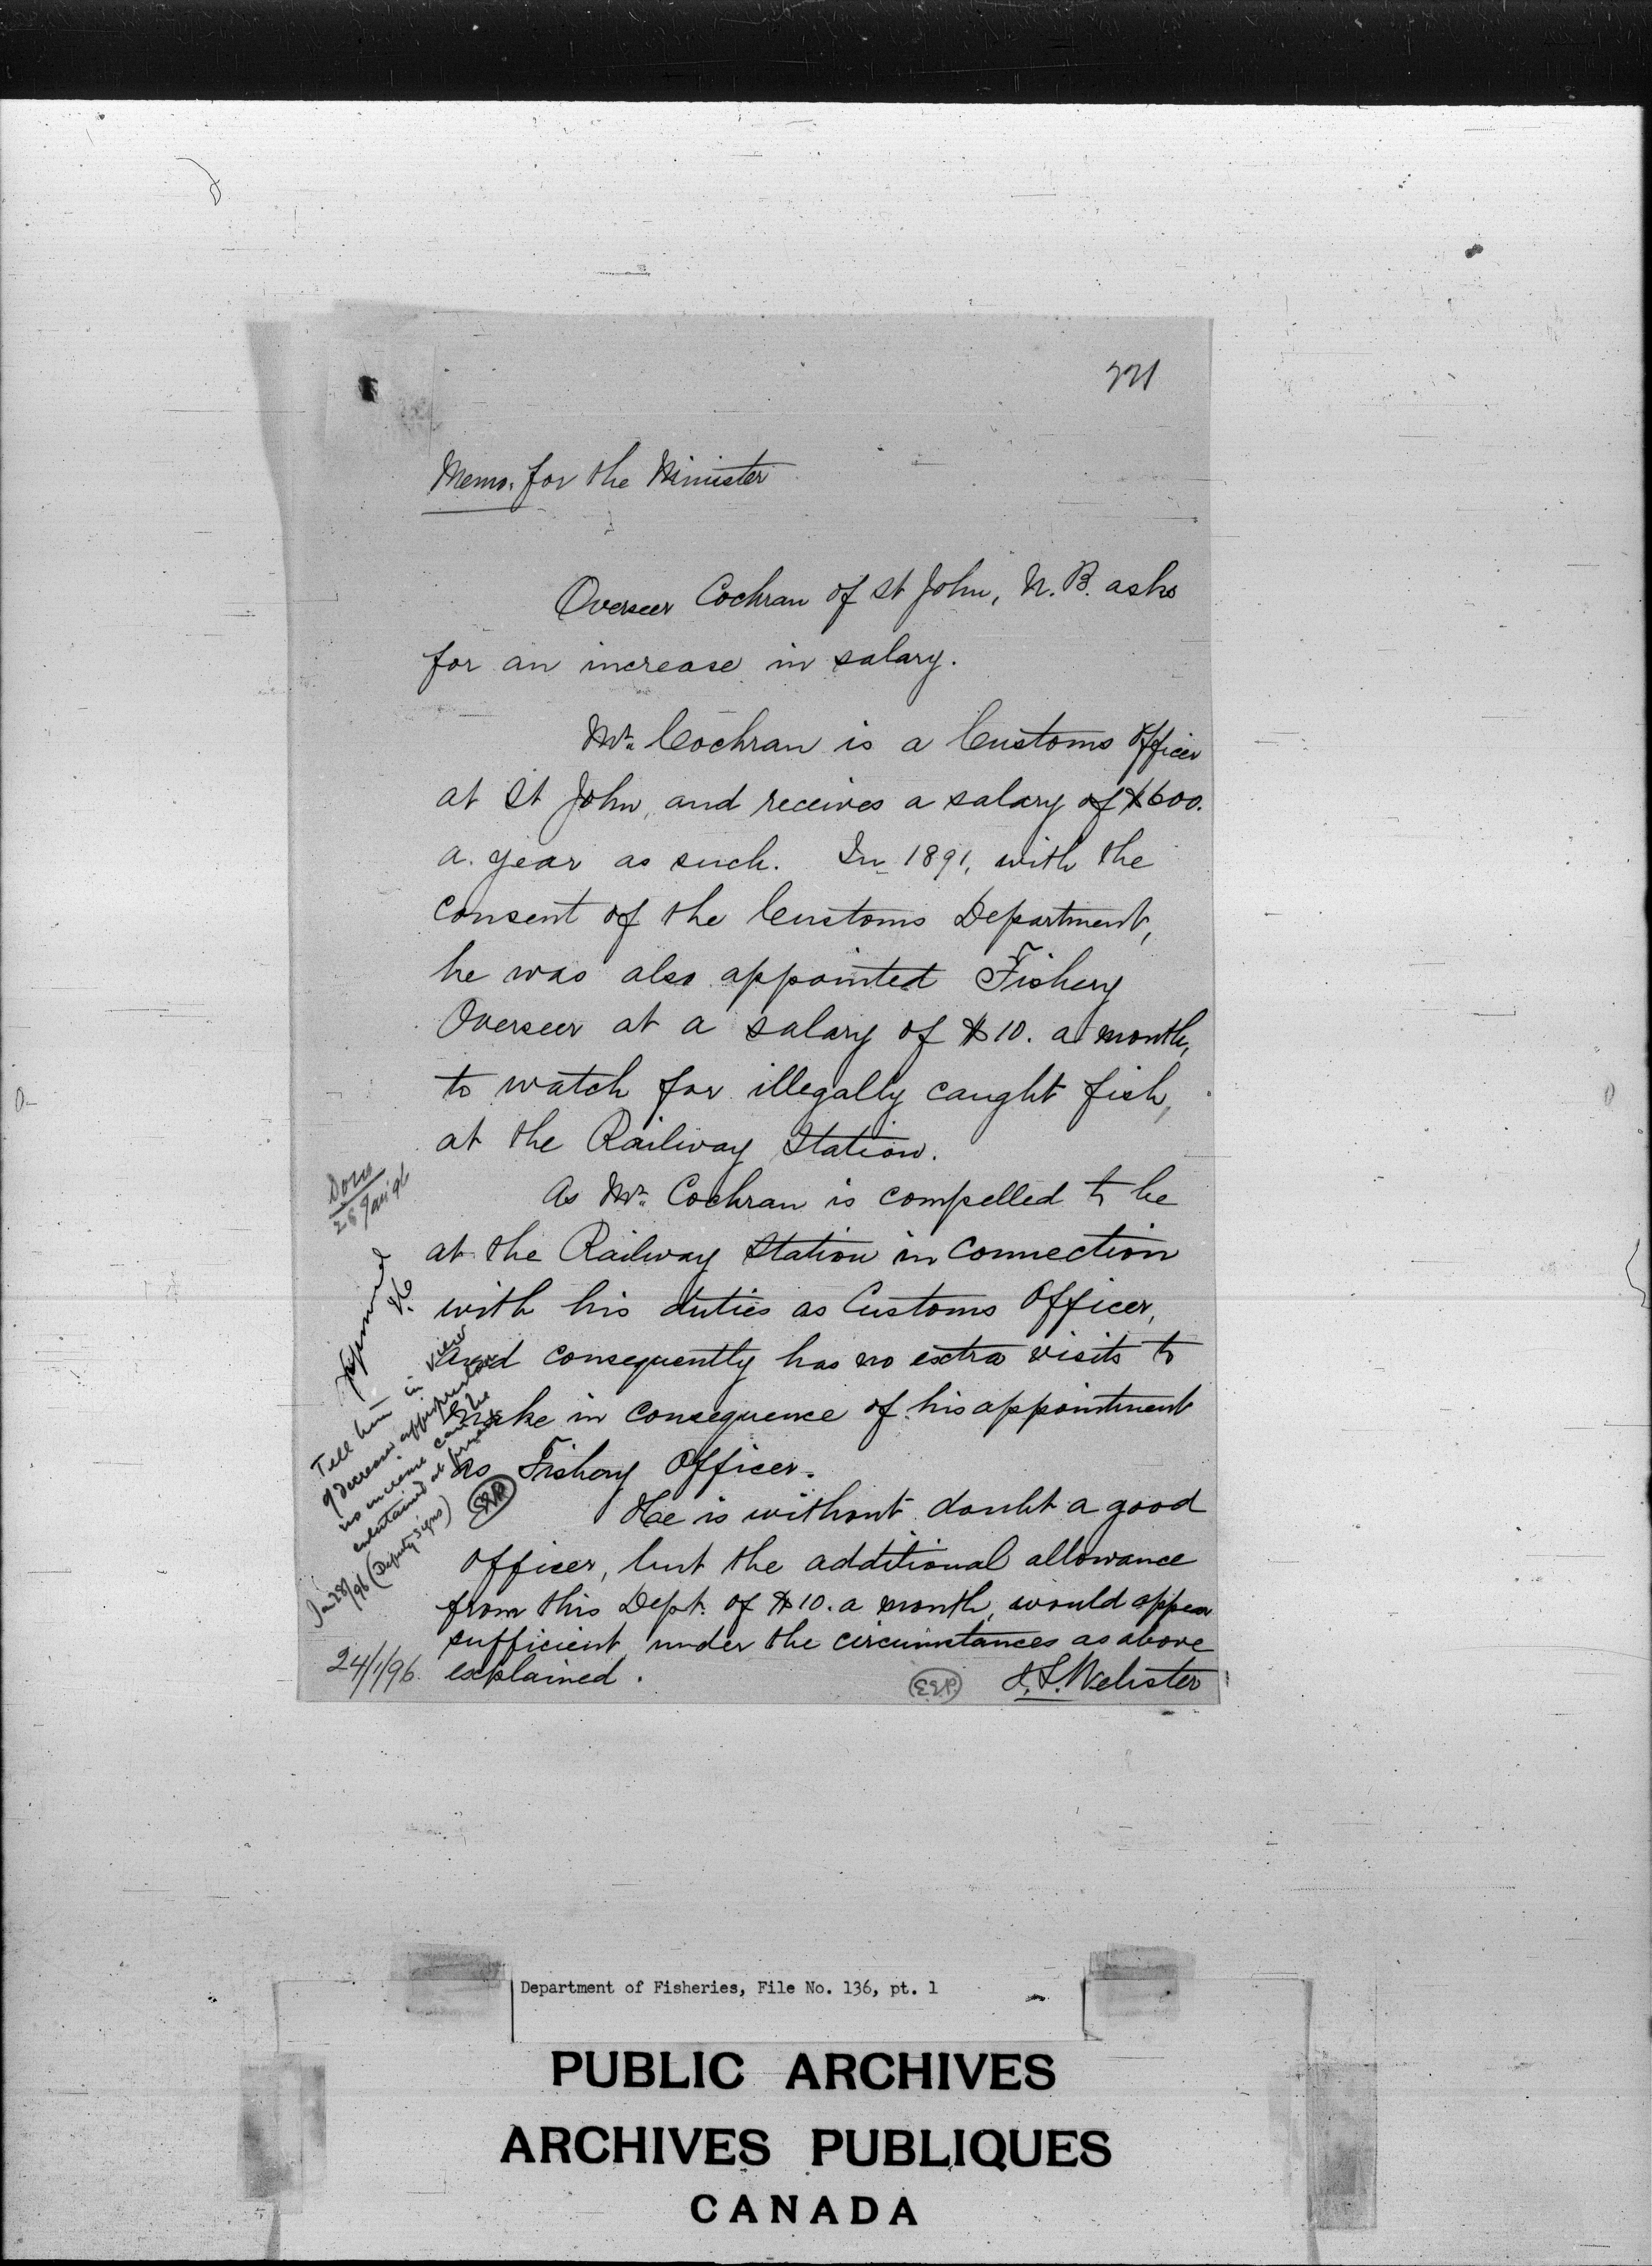 221
Memo. for the Minister
Overseer Cochran of St John, N.B. asks
for an increase in salary.
Mr. Cochran is a Customs Officer
at St John, and receives a salary of $600.
a year as such. In 1891, with the
consent of the Customs Department,
he was also appointed Fishery
Overseer at a salary of $10. a month,
to watch for illegally caught fish,
at the Railway Station.
As Mr. Cochran is compelled to be
at the Railway Station in connection
with his duties as Customs Officer,
and consequently has no extra visits to
make in consequence of his appointment
as Fishery Officer.
He is without doubt a good
officer, but the additional allowance
from this Dept. of $10. a month, would appear
sufficient under the circumstances as above
explained.
24/1/96.
Webster
Done
28 Jan '96
Approved
Tell him in view
of decreased appropriation
no increase can be
entertained at present
(Deputy signs)
Jan 28/96
Department of Fisheries, File No. 136, pt. 1
PUBLIC ARCHIVES
ARCHIVES PUBLIQUES
CANADA